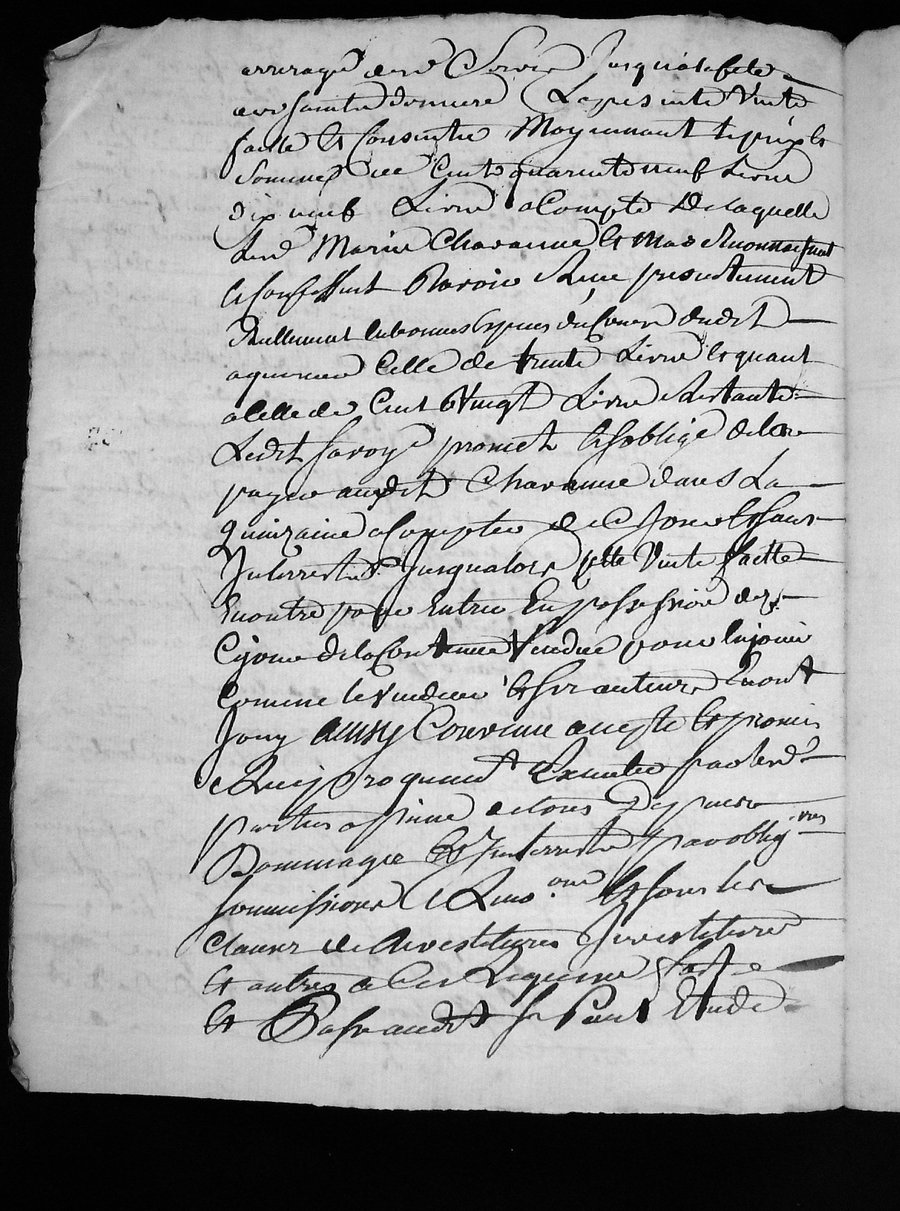 arrerages dud Servis Jusqua la fete
de sainte derniere La presente Vente
faitte Et Consentie Moyennant le prix Et
Somme de Cent quarente neuf Livre
Dix neuf Livre a Compte De laquelle
Led Marin Chavanne Et Mad Reconnaissent
Et Confessent Avoir Reeu presentement
Reellement En bonnes Especes du Cours dudit
acquereur Celle de trente Livre Et quant
a Celle de Cent Vingt Livre Restante
Ledit Savoye promet Et soblige de la
payer audit Chavanne dans La
Quinzaine a Compter de Ce Jour Et sans
Interrest Jusqualors cette Vente faitte
En outre pour Entrer En possession des
Ce jour de la Contenue Vendue pour En jouir
Comme le Vendeur Et ses auteurs En ont
Jouy ainsy Convenu accepte Et promis
Reciproquement Executer par lesd
parties a peine de tous Depens
Dommages Et Interrests par oblig ons
soumissions Et Renon one Et sous les
Clauses de devestitures Investitures
Et autres a Ces Requises fait
Et Passe audit St Paul Etude